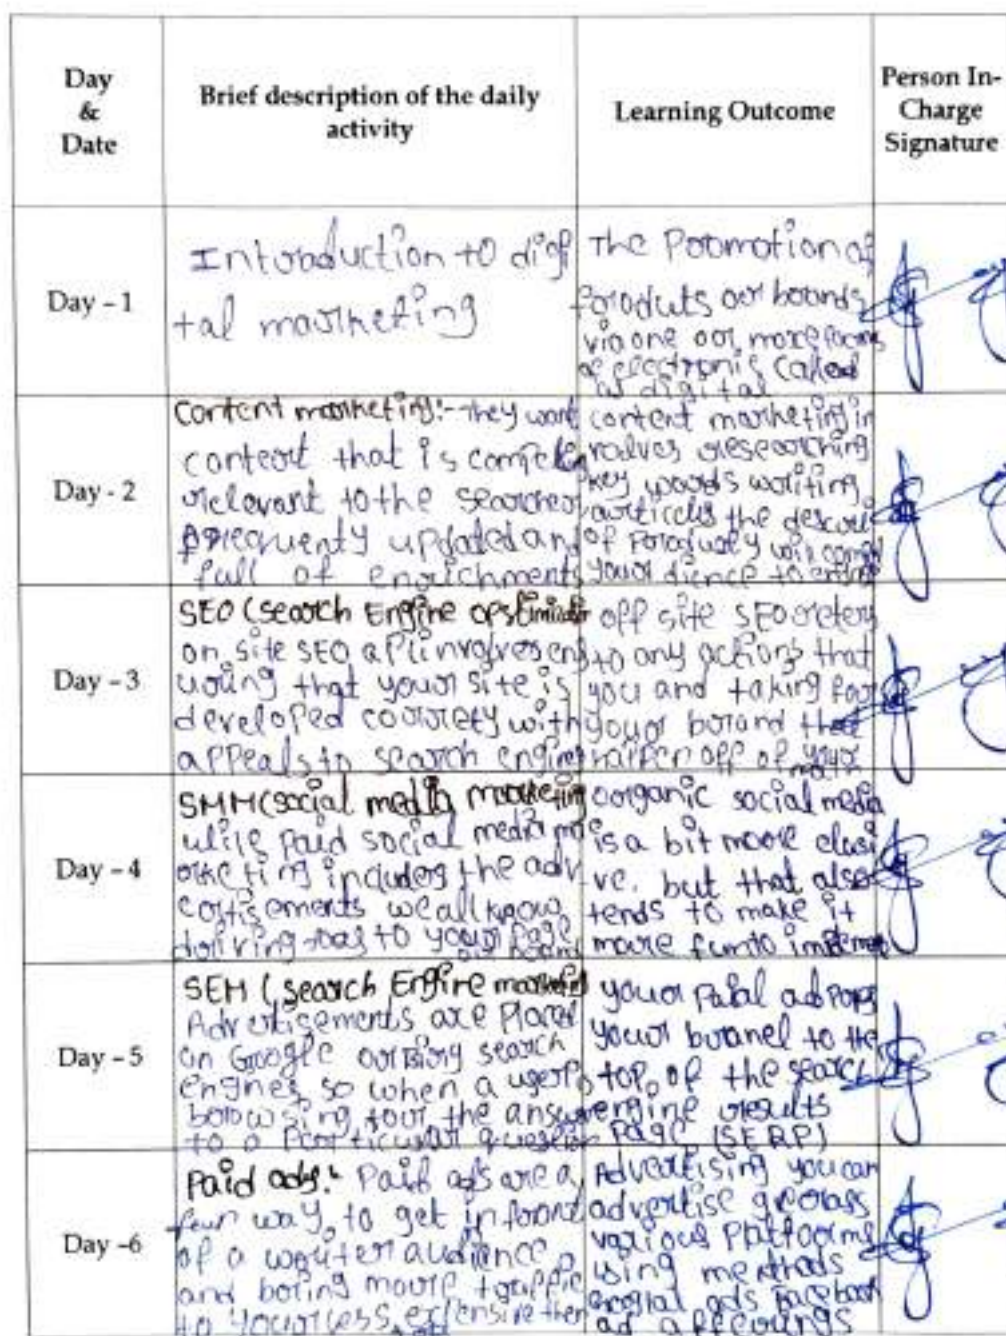 Day
&
Date
Brief description of the daily
activity
Learning Outcome
Person In-
Charge
Signature
Day - 1
Introduction to digi
tal marketing
The Promotion of
products or brands
via one or more forms
of electronic called
as digital
Day - 2
Content marketing:- They want
content that is
relevant to the searcher
frequenty updated and
full of enrichments
content marketing in
valves researching
key words writing
articles the
of
your dience to
Day - 3
SEO (search Engine
on site SEO involves ens
uring that your site is
developed correty with
appeals to search engine
off site SEO refers
to any actions that
you and taking for
your brand that
off of your
Day - 4
SMM (social media marketing
wile paid social media ma
rketing includes the adv
ertisements we all know
driving to your page
organic social media
is a bit more elusi
ve. but that also
tends to make it
more fun to
Day - 5
SEM (search Engine
Advertisements are placed
on Google or Bing search
engines, so when a user
browsing for the answer
to a question
your ad pops
your to the
top of the search
engine results
page (SERP)
Day -6
Paid ads:- Paid ads are a
way, to get in front
of a audience
and bring more traffic
to your less expensive then
Advertising you can
advertise
various Platforms
using methods
ads Facebook
ad offerings